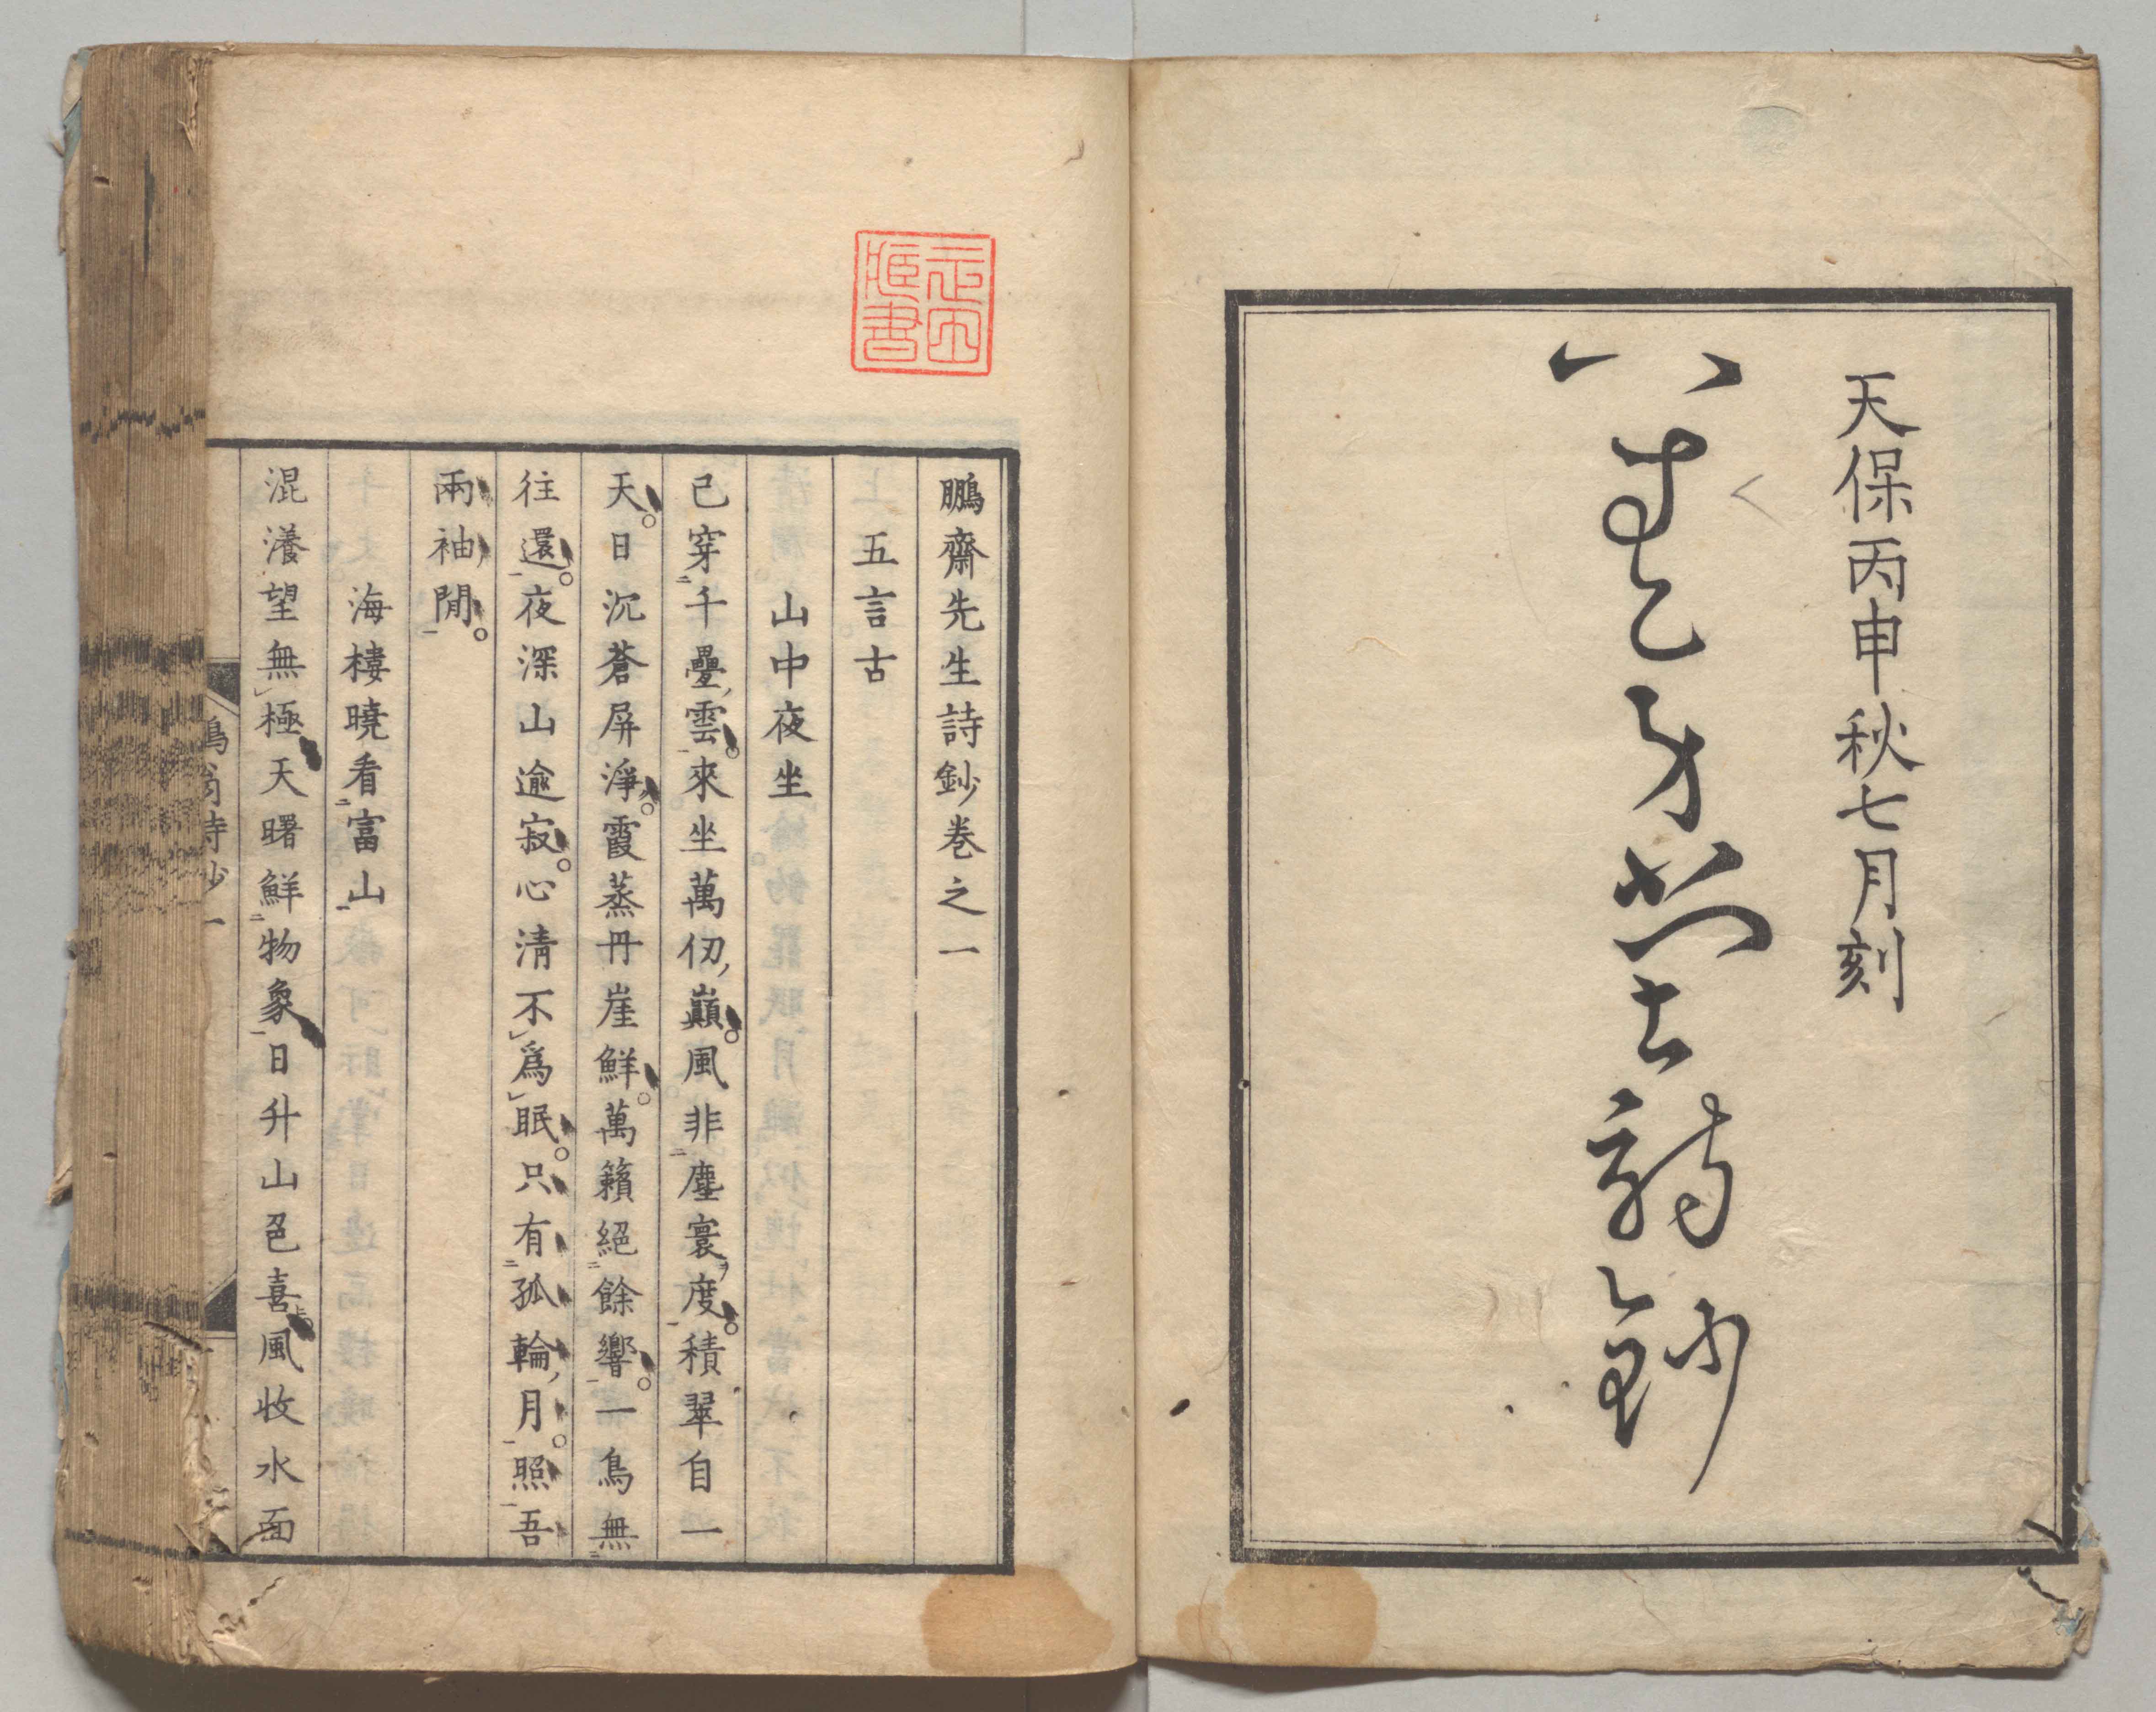 天保丙申秋七月刻
八詩鈔
鵬齋先生詩鈔巻之一
五言古
山中夜坐
己穿千疊雲。來坐萬仭巓。風非塵寰度。積翠自一
天。日沉蒼屏淨。霞蒸丹崖鮮。萬籟絕餘響。一鳥無
往還。夜深山逾寂。心清不爲眠。只有孤輪月。照吾
兩袖閒。
海樓曉看富山
混瀁望無極天曙鮮物象日升山色喜風收水面
翁詩鈔一
藏書